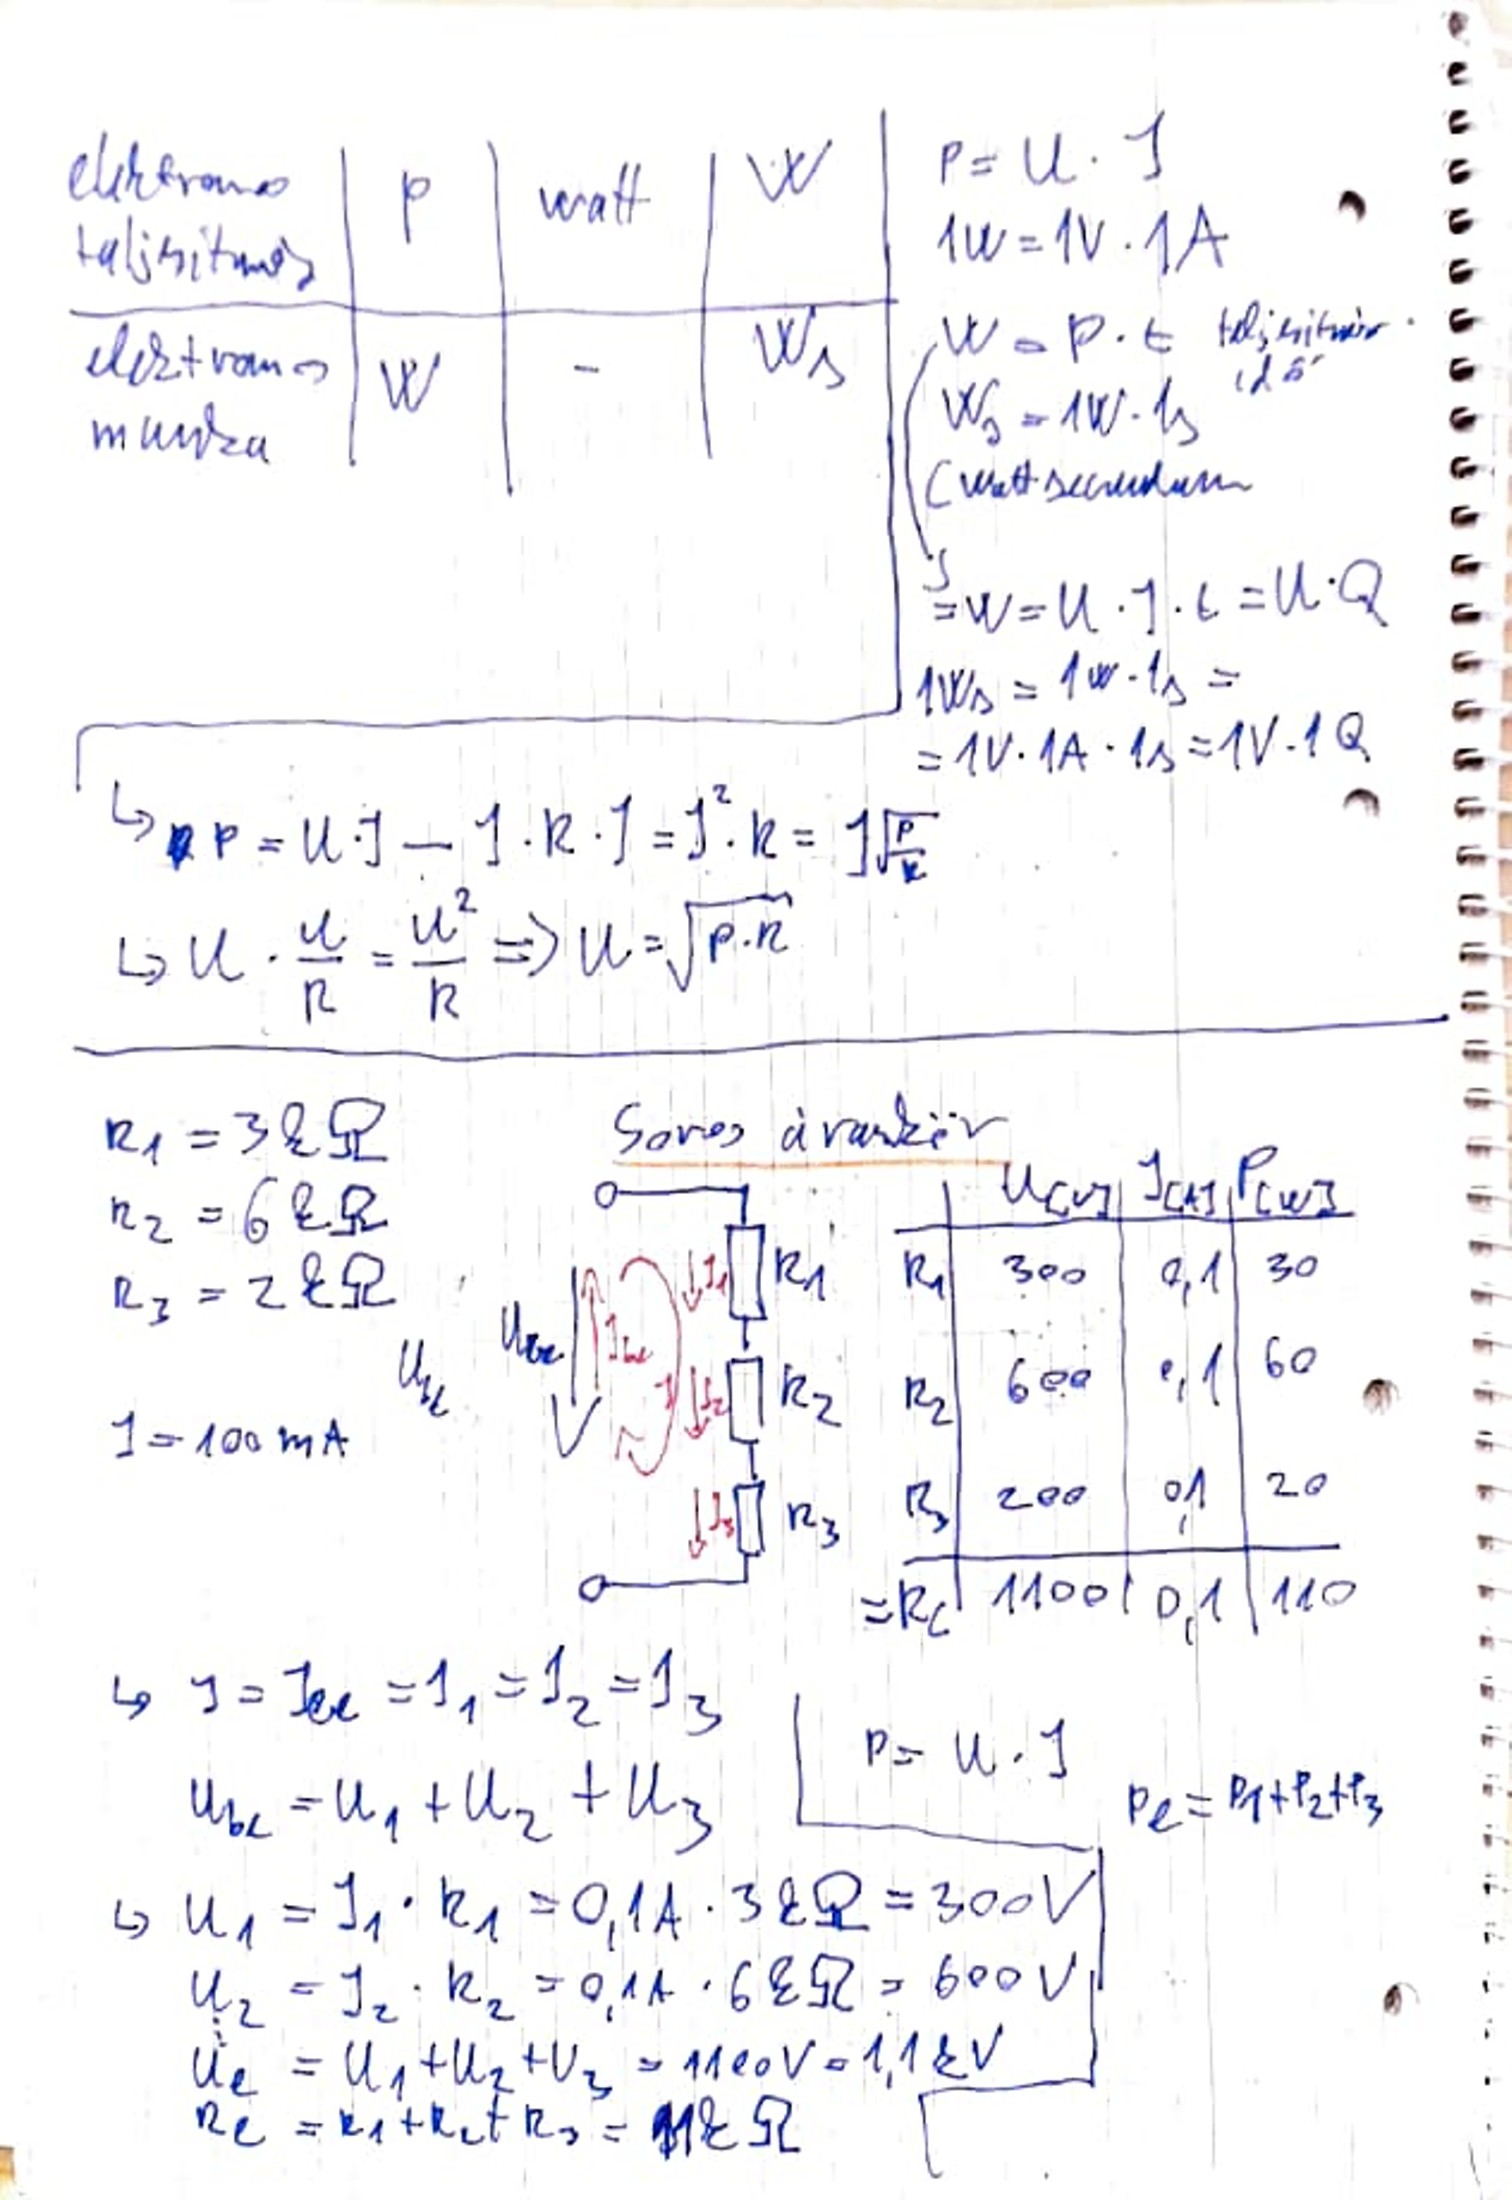 elektromos | P | watt | W
teljesítmény
elektromos | W | - | Ws
munka
P = U · I
1W = 1V · 1A
W = P · t teljesítmény ·
idő
Ws = 1W · 1s
(watt secundum
= W = U · I · t = U · Q
1Ws = 1W · 1s =
= 1V · 1A · 1s = 1V · 1Q
↳ P = U · I — I · R · I = I² · R = I√(P/R)
↳ U · U/R = U²/R => U = √(P · R)
Soros áramkör
R1 = 3kΩ
R2 = 6kΩ
R3 = 2kΩ
I = 100mA
Ube
Ube Ibe I
I1 R1
I2 R2
I3 R3
U[V] | I[A] | P[W]
R1 | 300 | 0,1 | 30
R2 | 600 | 0,1 | 60
R3 | 200 | 0,1 | 20
=Re | 1100 | 0,1 | 110
↳ I = Ibe = I1 = I2 = I3
Ube = U1 + U2 + U3
P = U · I
Pe = P1+P2+P3
↳ U1 = I1 · R1 = 0,1A · 3kΩ = 300V
U2 = I2 · R2 = 0,1A · 6kΩ = 600V
Ue = U1 + U2 + U3 = 1100V = 1,1kV
Re = R1 + R2 + R3 = 11kΩ